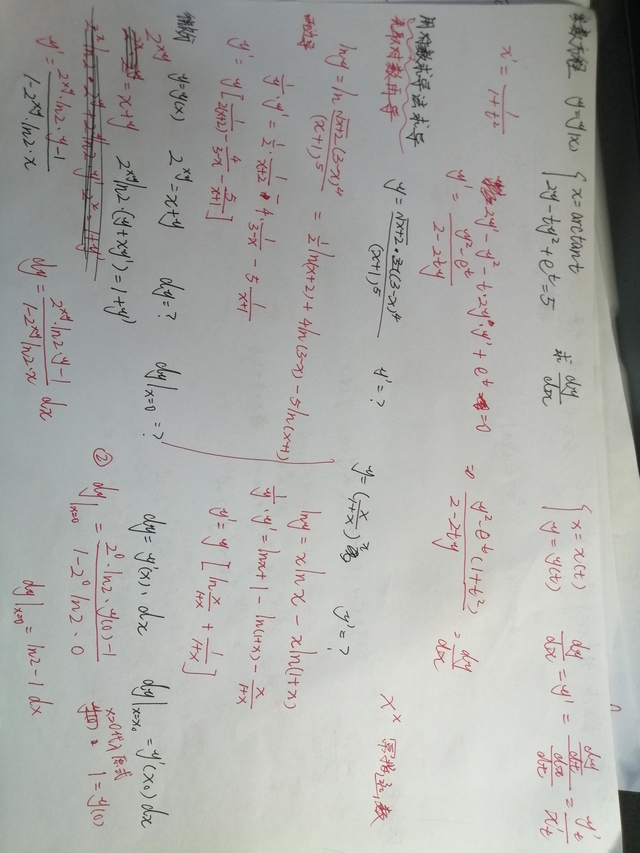 参数方程 y=y(x) { x=arctant 2y-ty²+e^t=5 求 dy/dx
{ x=x(t) y=y(t) dy/dx = y' = (dy/dt)/(dx/dt) = y't/x't
x'=1/(1+t²) 2y'-y²-t·2y·y'+e^t=0
y'=(y²-e^t)/(2-2ty) ⇒ (y²-e^t)(1+t²)/(2-2ty) = dy/dx
用对数求导法求导
先取对数再导
y=√(x+2)·(3-x)⁴/(x+1)⁵ y'=?
y=(x/(1+x))^x y'=?
x^x 幂指函数
lny=ln √(x+2)(3-x)⁴/(x+1)⁵ = ½ln(x+2)+4ln(3-x)-5ln(x+1)
1/y·y'=½·1/(x+2)-4·1/(3-x)-5·1/(x+1)
y'=y[1/(2(x+2))-4/(3-x)-5/(x+1)]
lny=xlnx-xln(1+x)
1/y·y'=lnx+1-ln(1+x)-x/(1+x)
y'=y[ln x/(1+x)+1/(1+x)]
微分 y=y(x) 2^xy=x+y dy=? dy|x=0=?
dy=y'(x)·dx dy|x=x₀=y'(x₀)dx
2^xy=x+y 2^xy ln2·(y+xy')=1+y'
y'=(2^xy ln2·y-1)/(1-2^xy·ln2·x)
dy=(2^xy·ln2·y-1)/(1-2^xy ln2·x) dx
② dy|x=0=(2⁰·ln2·y(0)-1)/(1-2⁰ ln2·0)
x=0代入原式
1=y(0)
dy|x=0=ln2-1dx